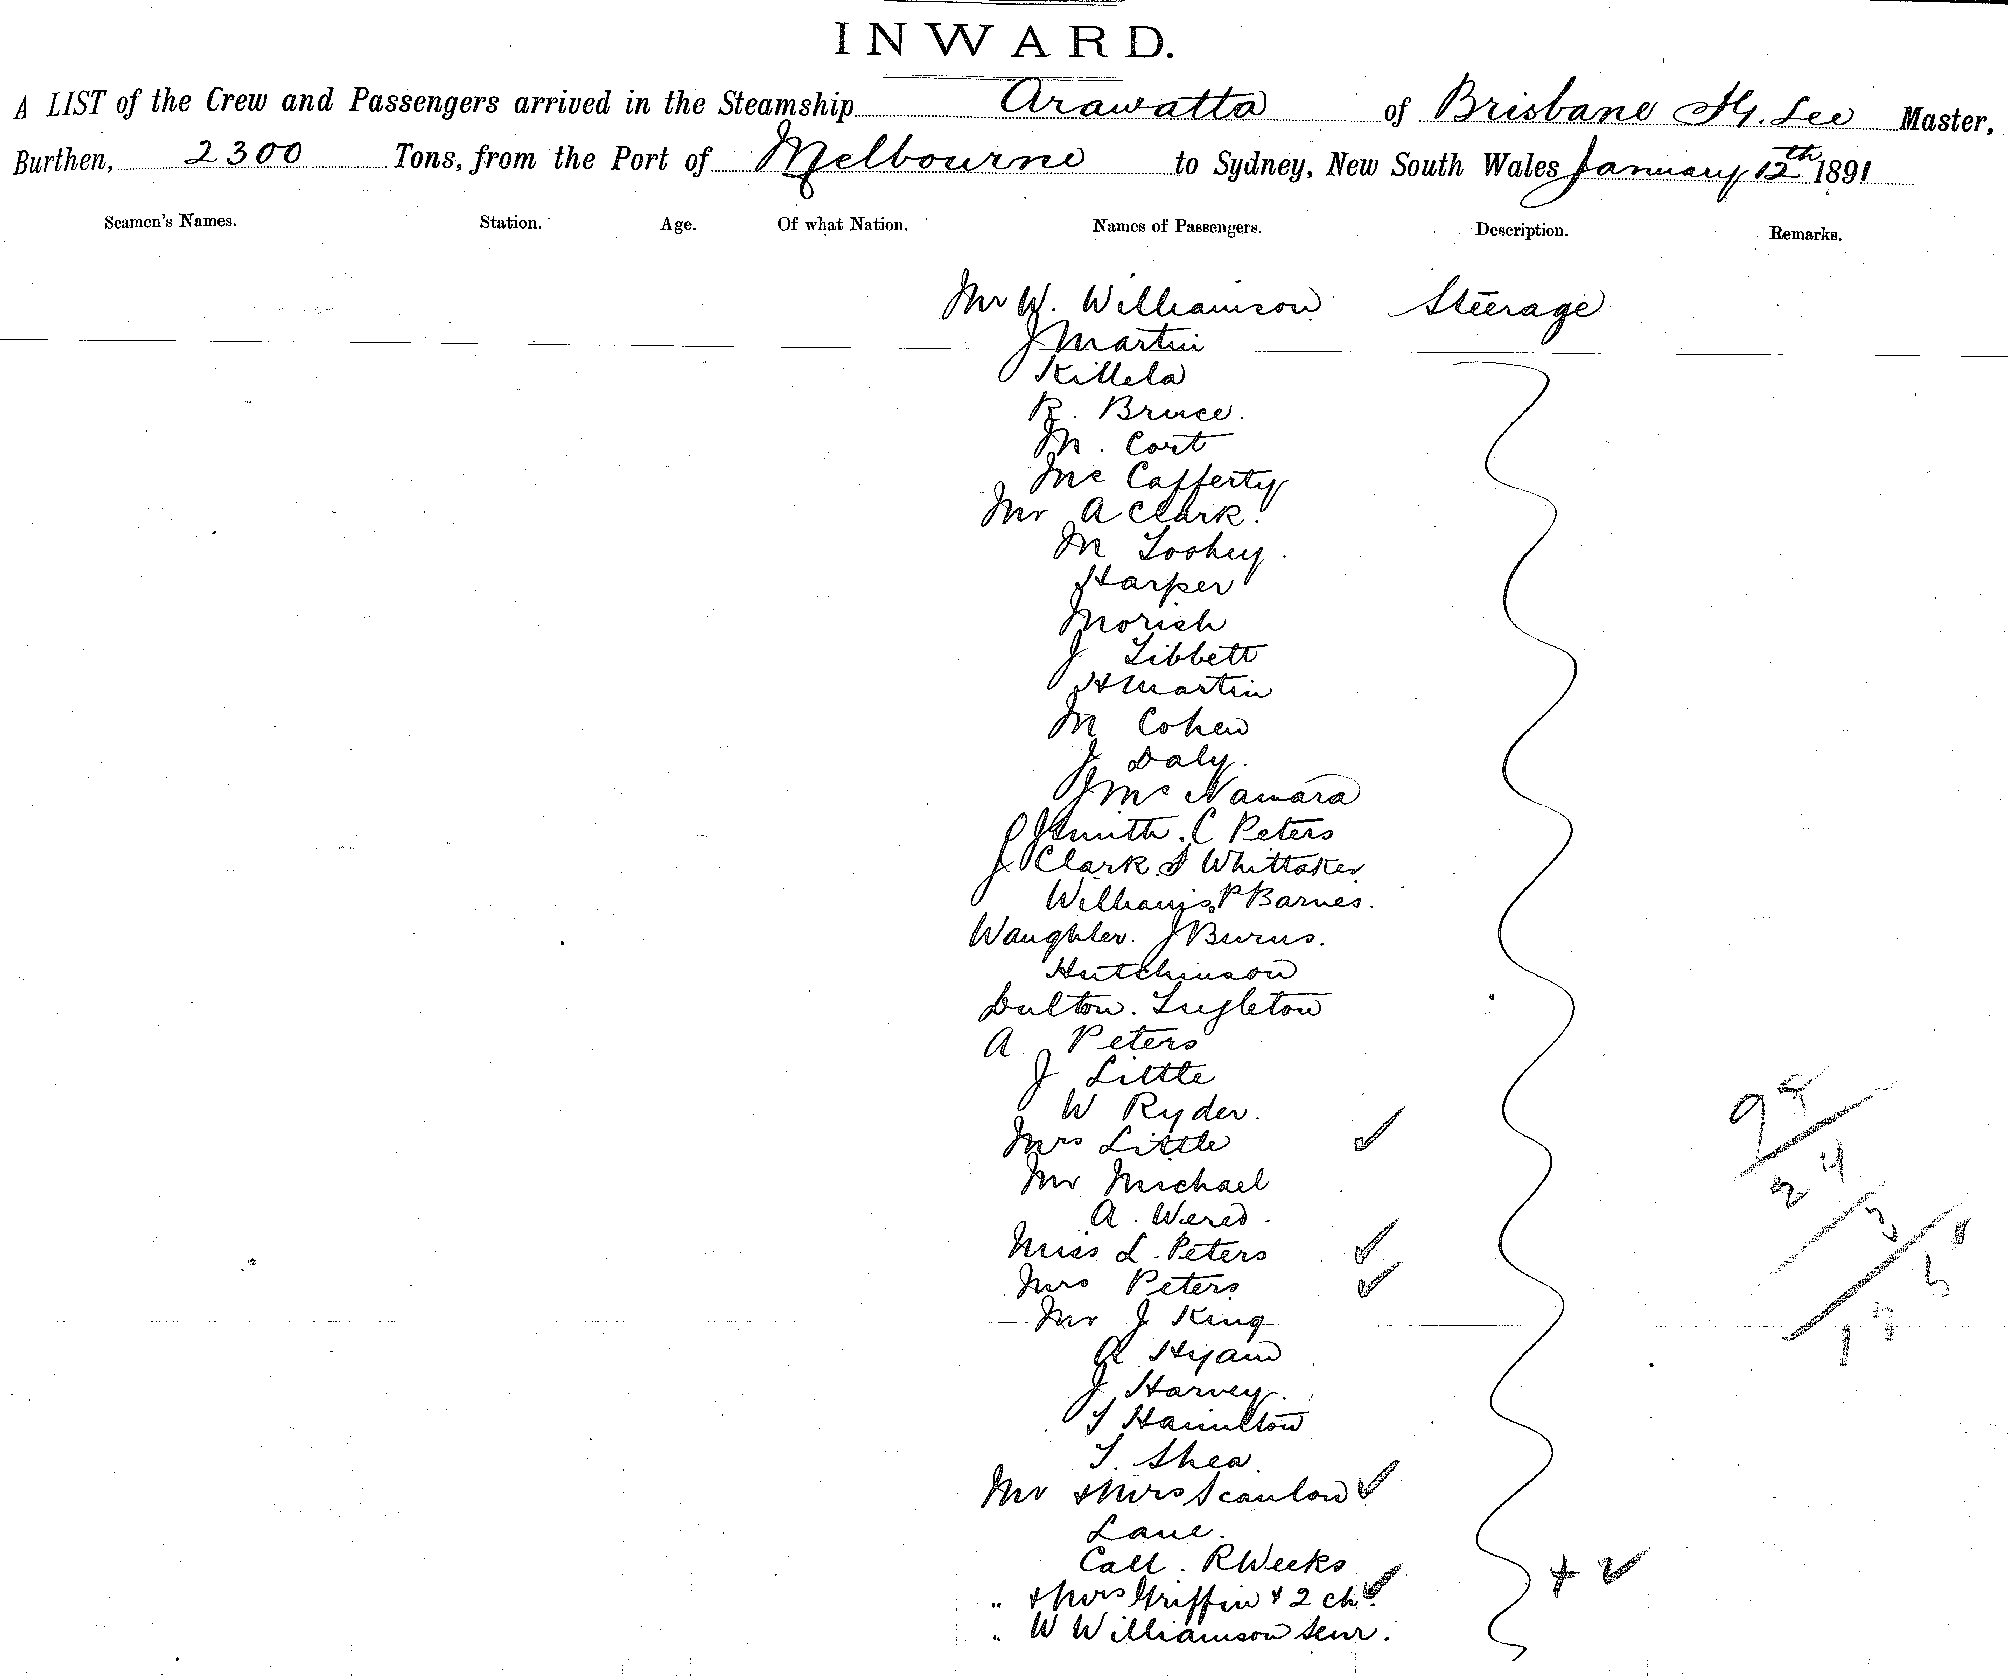 INWARD.
A LIST of the Crew and Passengers arrived in the Steamship Arawatta of Brisbane H. Lee Master,
Burthen, 2300 Tons, from the Port of Melbourne to Sydney, New South Wales January 12th 1891
Seamen's Names. Station. Age. Of what Nation. Names of Passengers. Description. Remarks.
Mr W. Williamson Steerage
J Martin
Killela
R. Bruce.
M. Cort
Mc Cafferty
Mr A Clark.
M Toohey.
Harper
Morish
J Tibbett
H Martin
M Cohen
J Daly.
J Mc Namara
J Smith. C Peters
J Clark S Whittaker
Williams, P Barnes.
Waughler. J Burns.
Hutchinson
Dulton. Singleton
A Peters
J Little
W Ryder.
Mrs Little ✓
Mr Michael
A.
Miss L. Peters ✓
Mrs Peters ✓
Mr J King
A Hyam
J Harvey.
T Hamilton
T. Shea.
Mr & Mrs Scanlon ✓
Lane.
Call. R Weeks
" & Mrs Griffin & 2 ch. ✓
" W Williamson Senr.